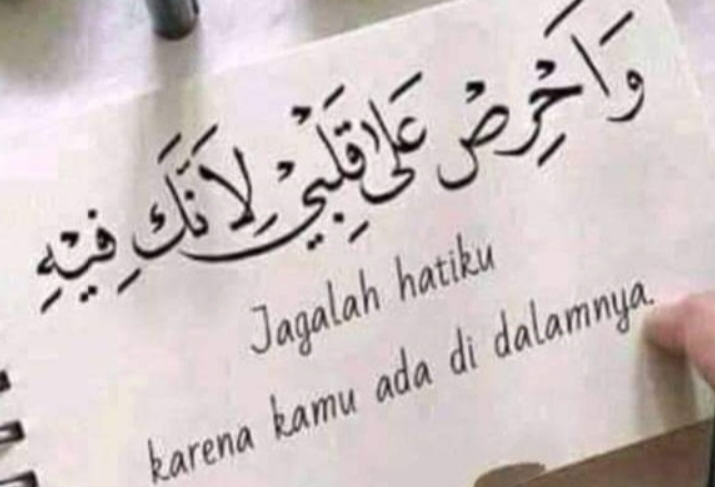 وَاحْرِصْ عَلَى قَلْبِيْ لِاَنَّكَ فِيْهِ
Jagalah hatiku
karena kamu ada di dalamnya.